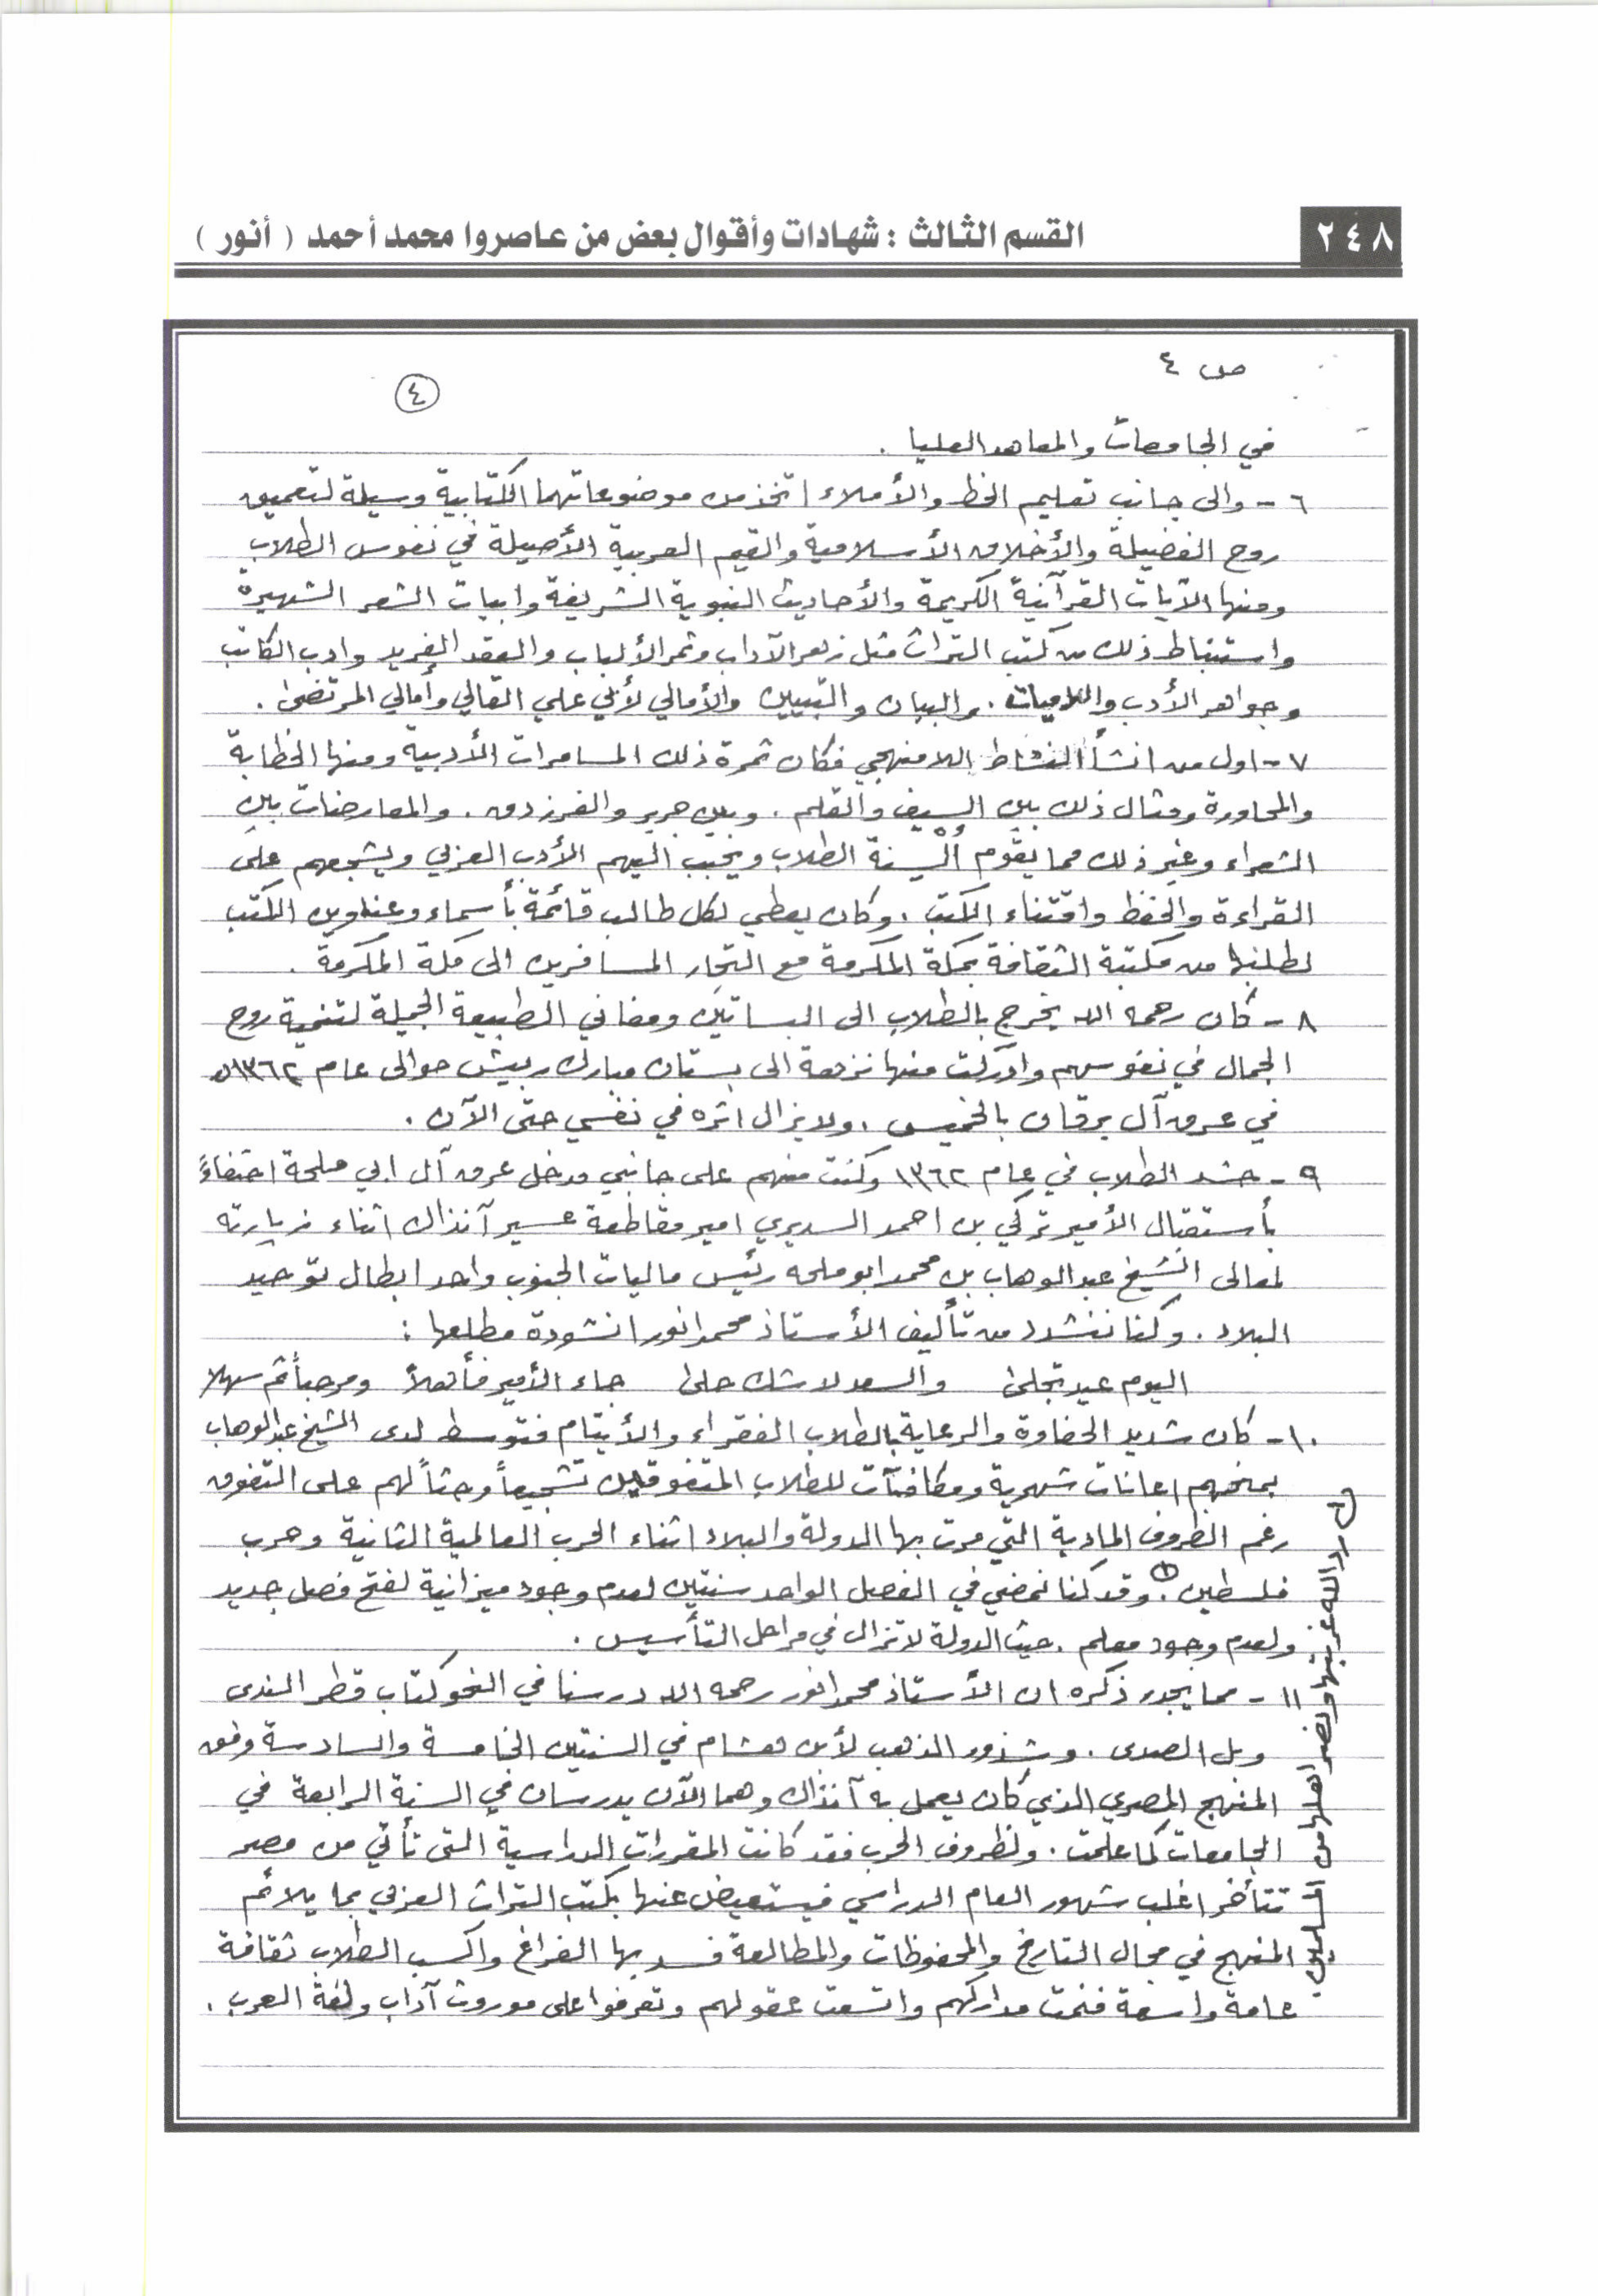 ٢٤٨
القسم الثالث : شهادات وأقوال بعض من عاصروا محمد أحمد ( أنور )
ص ٤
٤
في الجامعات والمعاهد العليا .
٦ - والى جانب تعليم الخط والأملاء اتخذ من موضوعاتهما الكتابية وسيلة لتعميق
روح الفضيلة والأخلاق الأسلامية والقيم العربية الأصيلة في نفوس الطلاب
ومنها الآيات القرآنية الكريمة والأحاديث النبوية الشريفة وابيات الشعر الشهيرة
واستنباط ذلك من كتب التراث مثل زهر الآداب وثمر الألباب والعقد الفريد وادب الكاتب
وجواهر الأدب واللاميات . والبيان والتبيين والأمالي لأبي علي القالي وأمالي المرتضى .
٧ - اول من انشأ النشاط اللامنهجي فكان ثمرة ذلك المسامرات الأدبية ومنها الخطابة
والمحاورة ومثال ذلك بين السيف والقلم . وبين جرير والفرزدق . والمعارضات بين
الشعراء وغير ذلك مما يقوم ألسنة الطلاب ويحبب اليهم الأدب العربي ويشجعهم على
القراءة والحفظ واقتناء الكتب . وكان يعطي لكل طالب قائمة بأسماء وعناوين الكتب
لطلبها من مكتبة الثقافة بمكة المكرمة مع التجار المسافرين الى مكة المكرمة .
٨ - كان رحمه الله يخرج بالطلاب الى البساتين ومغاني الطبيعة الجميلة لتنمية روح
الجمال في نفوسهم وادركت منها نزهة الى بستان مبارك ربيش حوالى عام ١٣٦٢ه
في عرق آل يرقان بالخميس . ولايزال اثره في نفسي حتى الآن .
٩ - حشد الطلاب في عام ١٣٦٢ وكنت منهم على جانبي مدخل عرق آل ابي ملحة احتفاءً
بأستقبال الأمير تركي بن احمد السديري امير مقاطعة عسير آنذاك اثناء زيارته
لمعالى الشيخ عبدالوهاب بن محمد ابو ملحه رئيس ماليات الجنوب واحد ابطال توحيد
البلاد . وكنا ننشد من تأليف الأستاذ محمد انور انشودة مطلعها :
اليوم عيد تجلى والسعد لاشك حلى جاء الأمير فأهلاً ومرحباً ثم سهلا
١٠ - كان شديد الحفاوة والرعاية بالطلاب الفقراء والأيتام فتوسط لدى الشيخ عبدالوهاب
بمنحهم اعانات شهرية ومكافئآت للطلاب المتفوقين تشجيعاً وحثاً لهم على التفوق
رغم الظروف المادية التي مرت بها الدولة والبلاد اثناء الحرب العالمية الثانية وحرب
فلسطين (١). وقد كنا نمضي في الفصل الواحد سنتين لعدم وجود ميزانية لفتح فصل جديد
ولعدم وجود معلم . حيث الدولة لا تزال في مراحل التأسيس .
١١ - مما يجدر ذكره ان الأستاذ محمد انور رحمه الله درسنا في النحو كتاب قطر الندى
وبل الصدى . وشذور الذهب لأبن هشام في السنتين الخامسة والسادسة وفق
المنهج المصري الذي كان يعمل به آنذاك وهما الآن يدرسان في السنة الرابعة في
الجامعات كما علمت . ولظروف الحرب فقد كانت المقررات الدراسية التى تأتي من مصر
تتأخر اغلب شهور العام الدراسي فيستعيض عنها بكتب التراث العربي بما يلائم
المنهج في مجال التاريخ والمحفوظات والمطالعة فسد بها الفراغ واكسب الطلاب ثقافة
عامة واسعة فنمت مداركهم واتسعت عقولهم وتعرفوا على موروث آداب ولغة العرب .
رد الله غربتها ونصر اهلها من المسلمين